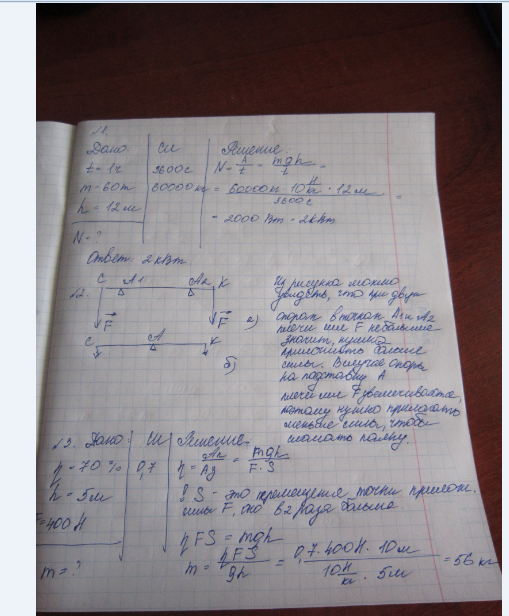 11.
Дано: СИ Решение:
t = 1ч 3600с N = A/t = mgh/t =
m = 60т 60000кг = 60000кг · 10 Н/кг · 12м / 3600с
h = 12м = 2000 Вт = 2кВт
N = ?
Ответ: 2 кВт
12. C A1 A2 K
F F а)
C A K
б)
Из рисунка можно
увидеть, что при двух
опорах в точках A1 и A2
плечи сил F небольшие
значит, нужно
приложить большие
силы. В случае опоры
на подставку A
плечи сил F увеличиваются,
поэтому нужно прилагать
меньше силы, чтобы
сломать палку.
13. Дано: СИ Решение:
η = 70% 0,7 η = Aп/Aз = mgh/F·S
h = 5м S - это перемещение точки прилож.
F=400Н силы F, оно в 2 раза больше
ηFS = mgh
m = ? m = ηFS/gh = 0,7·400Н · 10м / 10 Н/кг · 5м = 56 кг